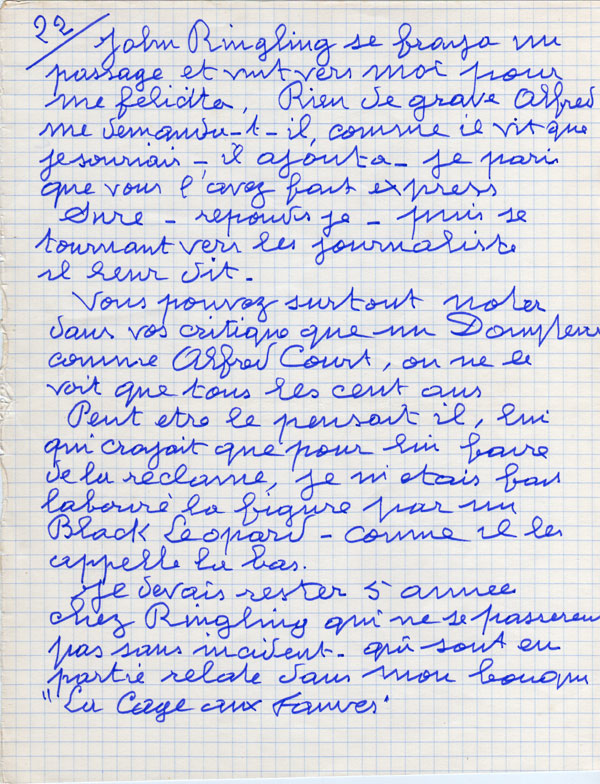 22
John Ringling se fraya un
passage et vint vers moi pour
me felicite, Rien de grave Alfred
me demanda-t-il, comme il vit que
je souriais - il ajouta - je paris
que vous l'avez fait express
Sure - repondis je - puis se
tournant vers les journaliste
il leur dit -
Vous pouvez surtout noter
dans vos critique que un Dompteur
comme Alfred Court, on ne le
voit que tous les cent ans
Peut etre le pensait il, lui
qui croyait que pour lui faire
de la réclame, je m'etais fait
labouré la figure par un
Black Leopard - comme il les
appelle la bas.
Je devais rester 5 annee
chez Ringling qui ne se passereu
pas sans incident - qui sont en
partie relate dans mon bouqui
"La Cage aux Fauves"